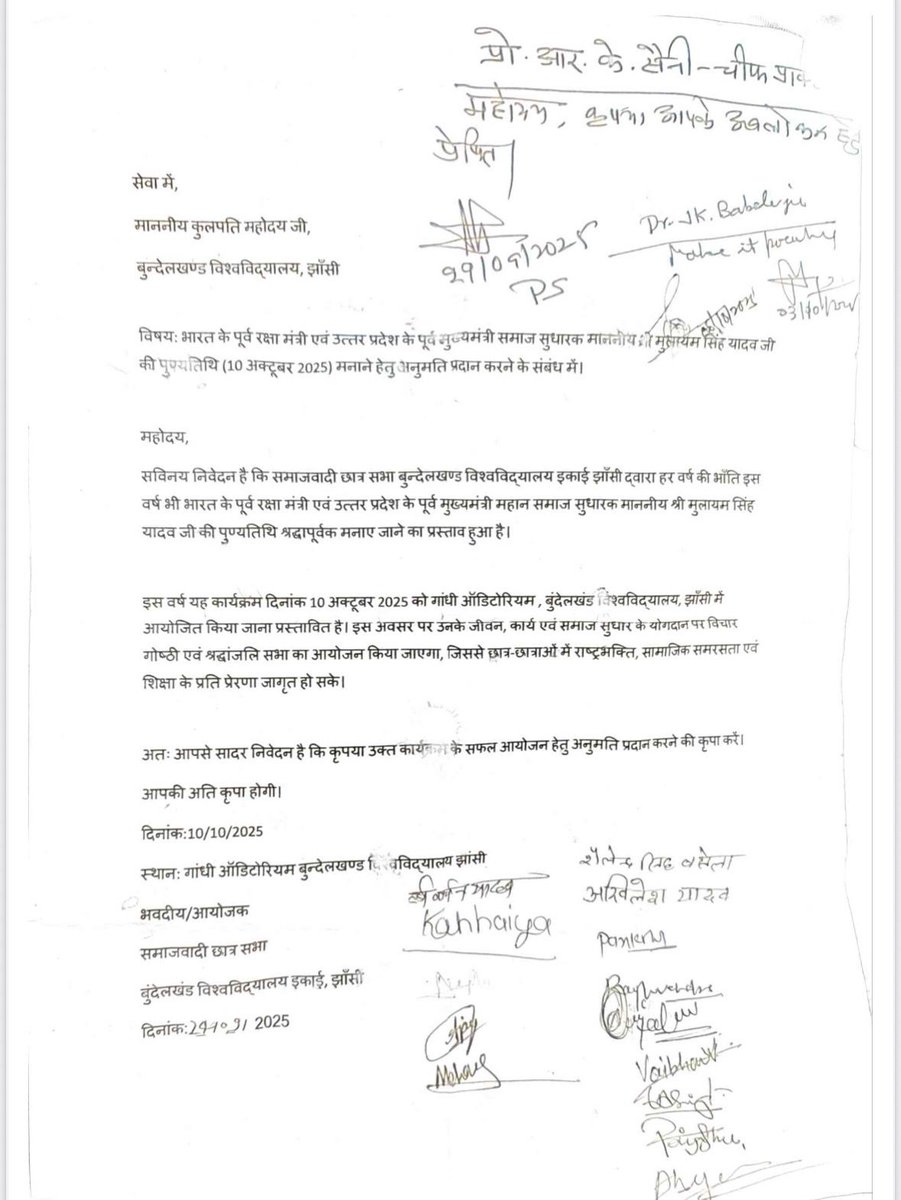 प्रो. आर. के. सैनी - चीफ प्राक
महोदय, कृपया आपके अवलोकन हेतु
प्रेषित
सेवा में,
माननीय कुलपति महोदय जी,
बुन्देलखण्ड विश्वविद्यालय, झाँसी
29/09/2025
PS
Dr. J.K. Babeleji
Make it
03/10/2025
विषय: भारत के पूर्व रक्षा मंत्री एवं उत्तर प्रदेश के पूर्व मुख्यमंत्री समाज सुधारक माननीय श्री मुलायम सिंह यादव जी
की पुण्यतिथि (10 अक्टूबर 2025) मनाने हेतु अनुमति प्रदान करने के संबंध में।
महोदय,
सविनय निवेदन है कि समाजवादी छात्र सभा बुन्देलखण्ड विश्वविद्यालय इकाई झाँसी द्वारा हर वर्ष की भाँति इस
वर्ष भी भारत के पूर्व रक्षा मंत्री एवं उत्तर प्रदेश के पूर्व मुख्यमंत्री महान समाज सुधारक माननीय श्री मुलायम सिंह
यादव जी की पुण्यतिथि श्रद्धापूर्वक मनाए जाने का प्रस्ताव हुआ है।
इस वर्ष यह कार्यक्रम दिनांक 10 अक्टूबर 2025 को गांधी ऑडिटोरियम , बुंदेलखंड विश्वविद्यालय, झाँसी में
आयोजित किया जाना प्रस्तावित है। इस अवसर पर उनके जीवन, कार्य एवं समाज सुधार के योगदान पर विचार
गोष्ठी एवं श्रद्धांजलि सभा का आयोजन किया जाएगा, जिससे छात्र-छात्राओं में राष्ट्रभक्ति, सामाजिक समरसता एवं
शिक्षा के प्रति प्रेरणा जागृत हो सके।
अतः आपसे सादर निवेदन है कि कृपया उक्त कार्यक्रम के सफल आयोजन हेतु अनुमति प्रदान करने की कृपा करें।
आपकी अति कृपा होगी।
दिनांक:10/10/2025
स्थान: गांधी ऑडिटोरियम बुन्देलखण्ड विश्वविद्यालय झांसी
भवदीय/आयोजक
समाजवादी छात्र सभा
बुंदेलखंड विश्वविद्यालय इकाई, झाँसी
दिनांक:29/09/ 2025
यादव
Kanhaiya
अखिलेश यादव
Vaibhav